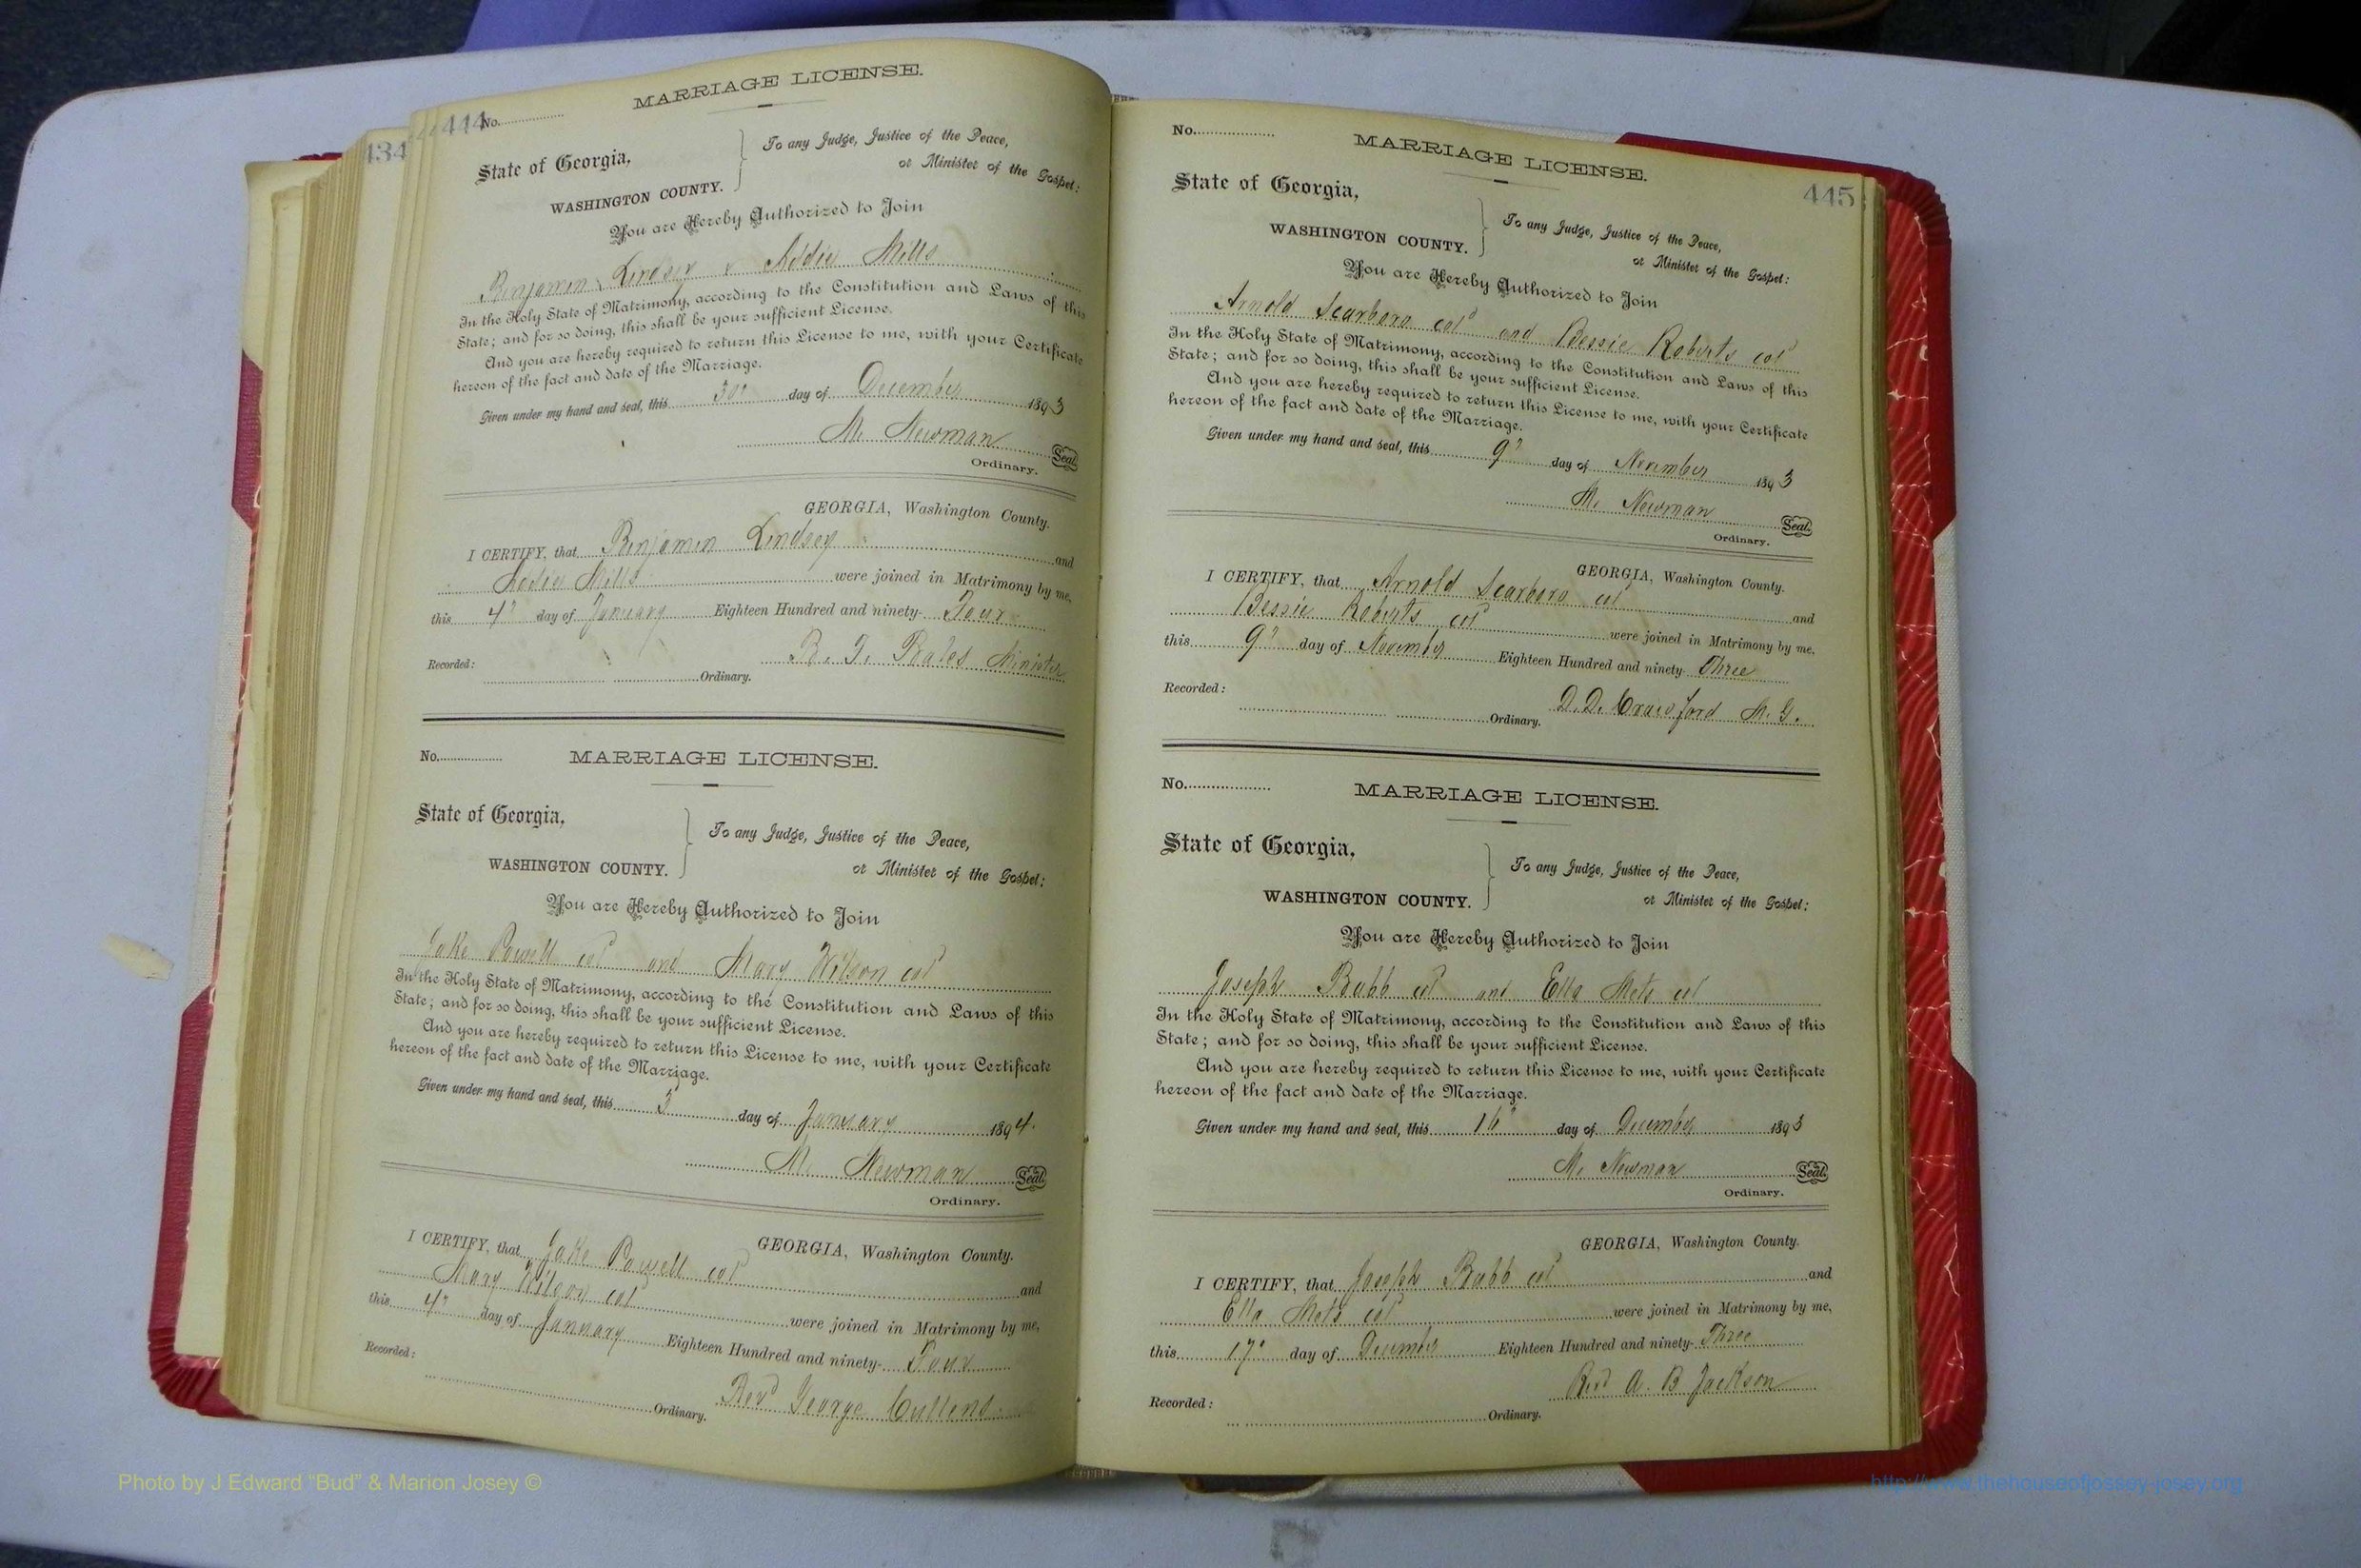 134
444
No.
MARRIAGE LICENSE.
State of Georgia,
WASHINGTON COUNTY.
To any Judge, Justice of the Peace,
or Minister of the Gospel:
You are Hereby Authorized to Join
Benjamin Lindsey & Addie Mills
In the Holy State of Matrimony, according to the Constitution and Laws of this
State; and for so doing, this shall be your sufficient License.
And you are hereby required to return this License to me, with your Certificate
hereon of the fact and date of the Marriage.
Given under my hand and seal, this 30" day of December 1893
M. Newman Seal.
Ordinary.
GEORGIA, Washington County.
I CERTIFY, that Benjamin Lindsey and
Addie Mills were joined in Matrimony by me,
this 4" day of January Eighteen Hundred and ninety- Four
B. T. Bates Minister
Recorded:
Ordinary.
No.
MARRIAGE LICENSE.
State of Georgia,
WASHINGTON COUNTY.
To any Judge, Justice of the Peace,
or Minister of the Gospel:
You are Hereby Authorized to Join
Jake Powell col and Mary Wilson col
In the Holy State of Matrimony, according to the Constitution and Laws of this
State; and for so doing, this shall be your sufficient License.
And you are hereby required to return this License to me, with your Certificate
hereon of the fact and date of the Marriage.
Given under my hand and seal, this 3 day of January 1894.
M. Newman Seal.
Ordinary.
GEORGIA, Washington County.
I CERTIFY, that Jake Powell col and
Mary Wilson col were joined in Matrimony by me,
this 4" day of January Eighteen Hundred and ninety- Four
Revd George Cullens
Recorded:
Ordinary.
No.
MARRIAGE LICENSE.
445
State of Georgia,
WASHINGTON COUNTY.
To any Judge, Justice of the Peace,
or Minister of the Gospel:
You are Hereby Authorized to Join
Arnold Scarboro col and Bessie Roberts col
In the Holy State of Matrimony, according to the Constitution and Laws of this
State; and for so doing, this shall be your sufficient License.
And you are hereby required to return this License to me, with your Certificate
hereon of the fact and date of the Marriage.
Given under my hand and seal, this 9" day of November 1893
M. Newman Seal.
Ordinary.
GEORGIA, Washington County.
I CERTIFY, that Arnold Scarboro col and
Bessie Roberts col were joined in Matrimony by me,
this 9" day of November Eighteen Hundred and ninety- Three
D. D. Crawford M. G.
Recorded:
Ordinary.
No.
MARRIAGE LICENSE.
State of Georgia,
WASHINGTON COUNTY.
To any Judge, Justice of the Peace,
or Minister of the Gospel:
You are Hereby Authorized to Join
Joseph Bubb col and Ella Mets col
In the Holy State of Matrimony, according to the Constitution and Laws of this
State; and for so doing, this shall be your sufficient License.
And you are hereby required to return this License to me, with your Certificate
hereon of the fact and date of the Marriage.
Given under my hand and seal, this 16" day of December 1893
M. Newman Seal.
Ordinary.
GEORGIA, Washington County.
I CERTIFY, that Joseph Bubb col and
Ella Mets col were joined in Matrimony by me,
this 17" day of December Eighteen Hundred and ninety- Three
Revd A. B Jackson
Recorded:
Ordinary.
Photo by J Edward “Bud” & Marion Josey ©
http://www.thehouseofjossey-josey.org